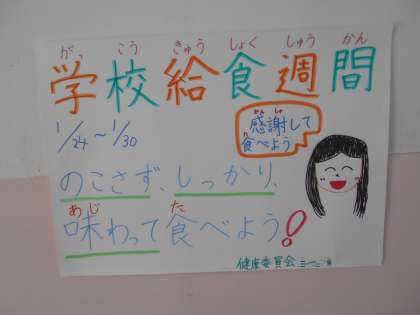 がっ こう きゅう しょく しゅう かん
学校給食週間
1/24～1/30
かん しゃ
感謝して
食べよう
のこさず、しっかり、
あじ た
味わって食べよう!
健康委員会